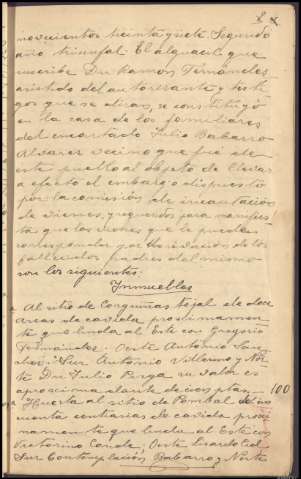 novecientos treinta y siete Segundo
año triunfal El alguacil que
suscribe Dn Ramon Fernández
asistido del autorisante y testi-
gos que se dirán, se constituyó
en la casa de los familiares
del encartado Julio Babarro
Alvarez vecino que fué de
este pueblo al objeto de llevar
a efecto el embargo dispuesto
por la comisión de incautación
de vienes, y requeridos para manifies-
ta que los vienes que le puedan
corresponder por la división de los
fallecidos padres del mismo
son los siguientes:
Inmuebles
Al sitio de Nojal de doce
areas de cavida proximamen-
te que linda al Este con Gregorio
Fernández. Oeste Antonio San-
Sur Antonio Villarino y Nor-
te Dn Julio su valor es
aproximadamente de cien ptas. 100
Huerta al sitio de Pombal de cin-
cuenta centiarias de cavida proxi-
mamente que linda al Este con
Victorino Conde, Oeste Cid
Sur Contemplación Babarro y Norte